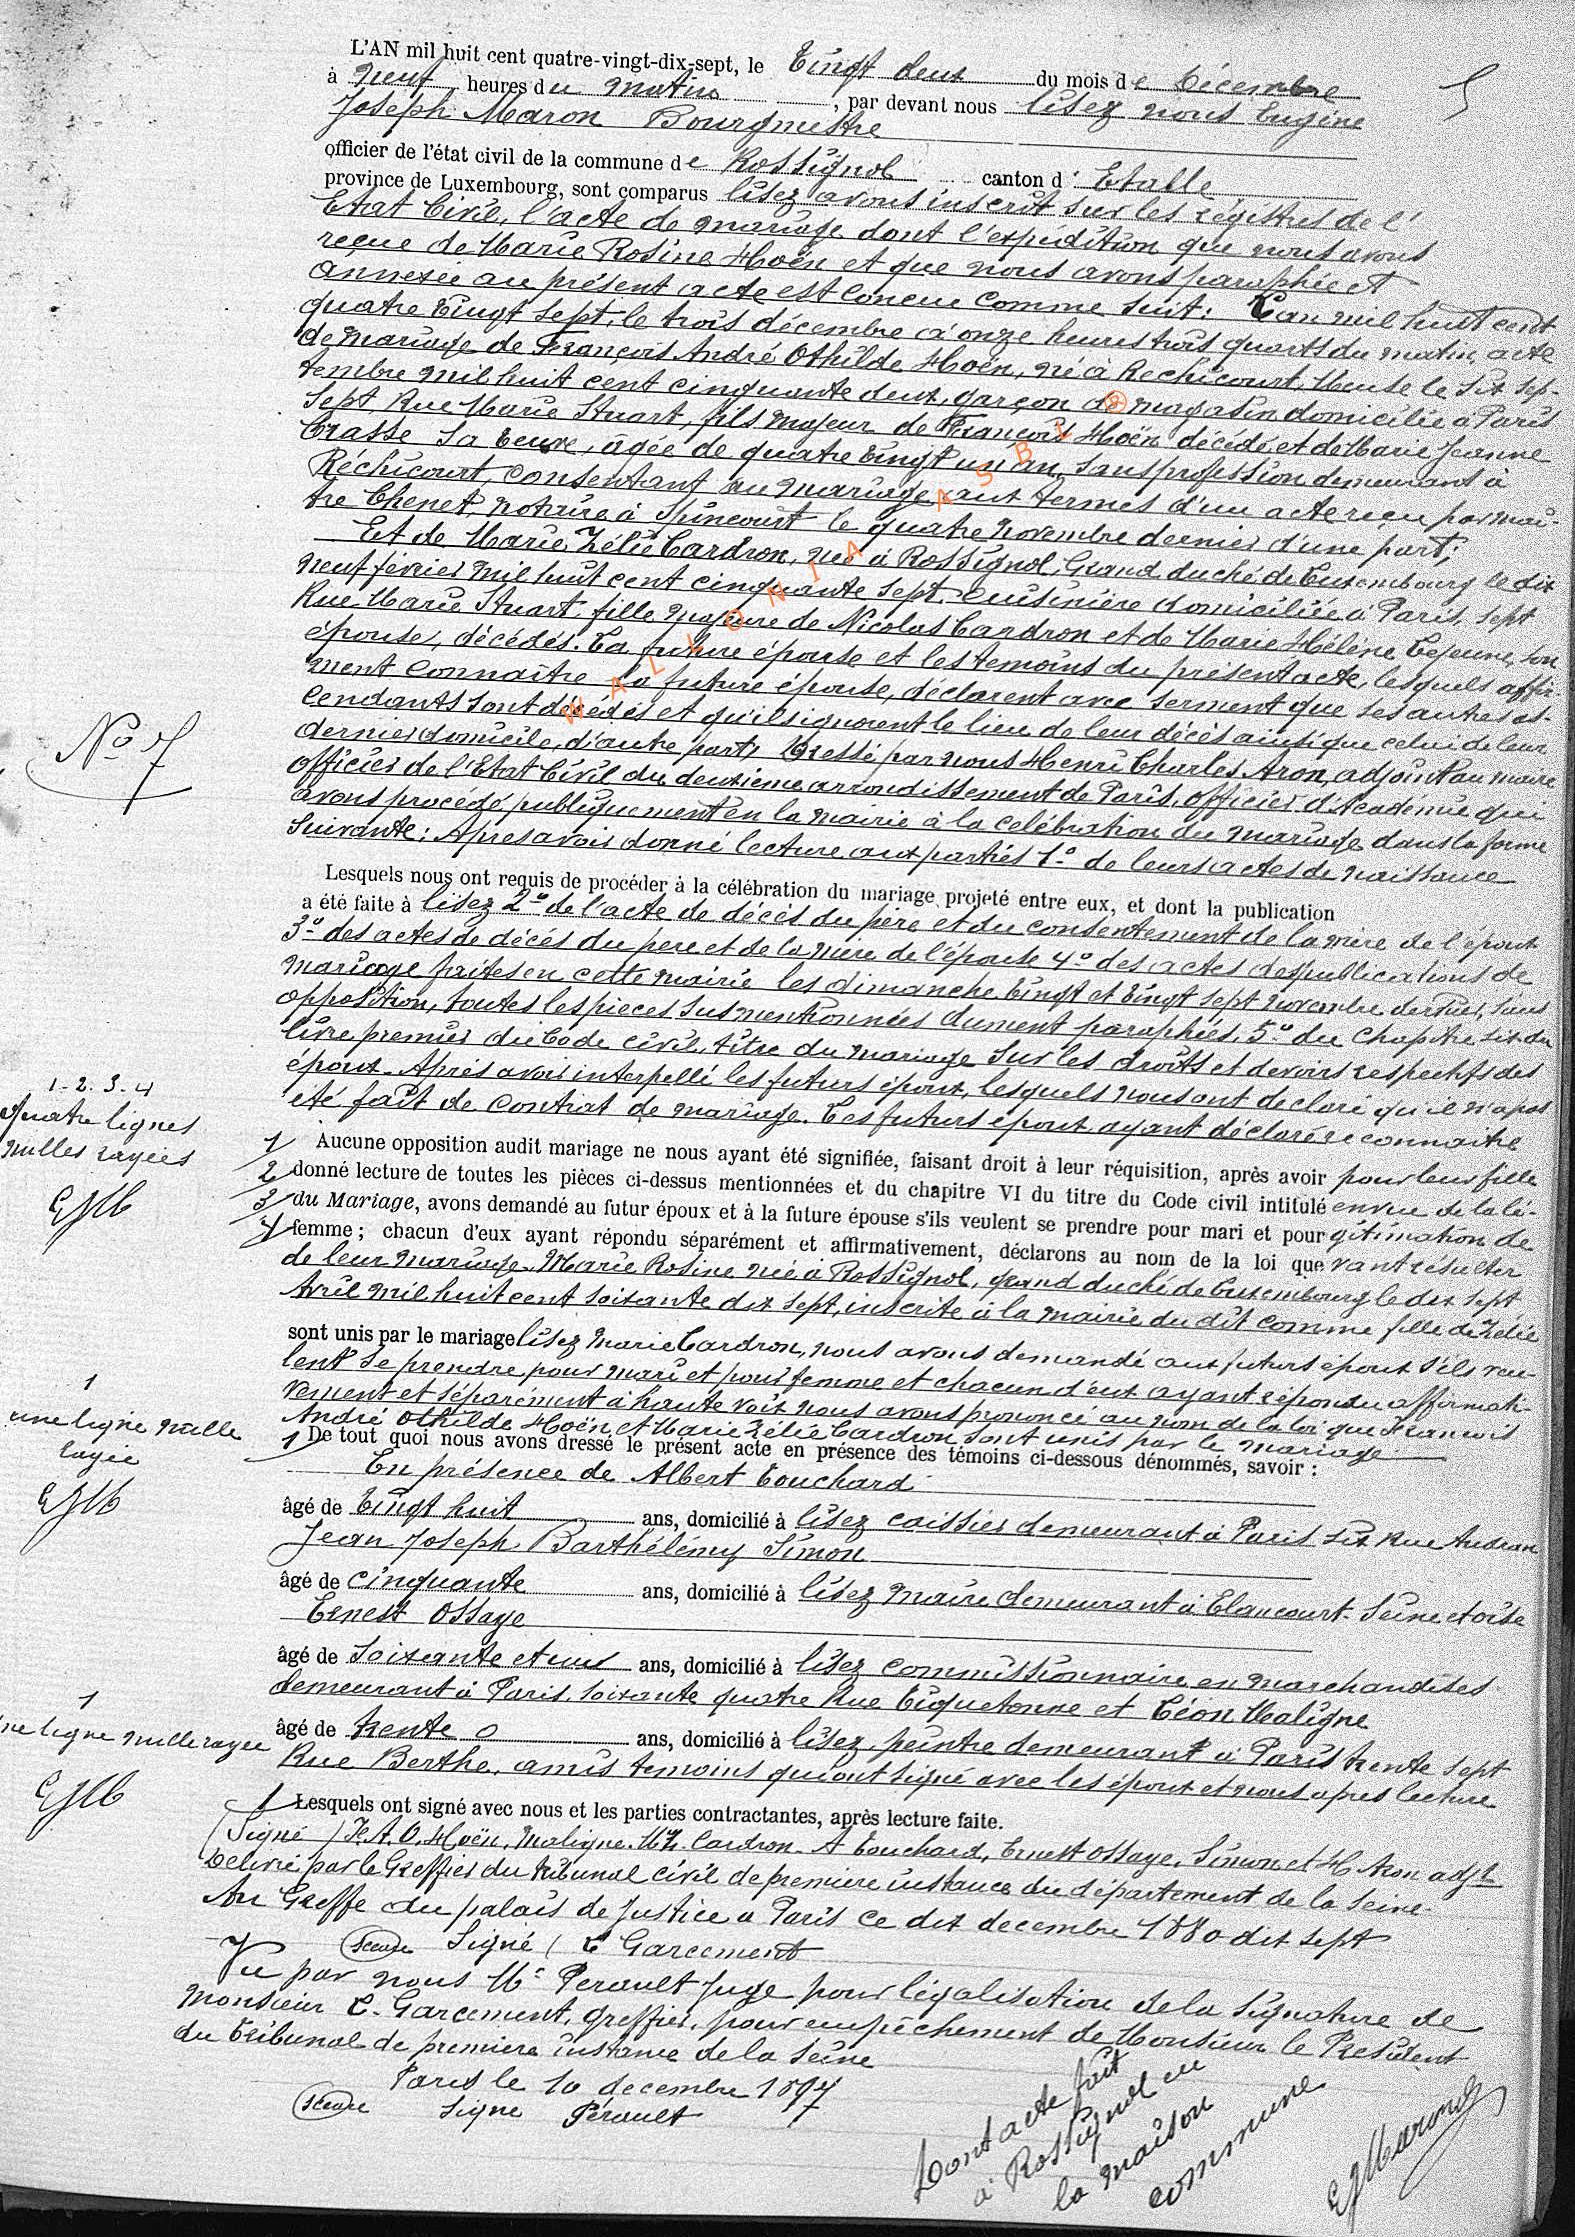 L'AN mil huit cent quatre-vingt-dix-sept, le Vingt deux du mois de Décembre
à neuf heures du matin, par devant nous lisez nous Eugène
Joseph Maron Bourgmestre
officier de l'état civil de la commune de Rossignol canton d'Etalle
province de Luxembourg, sont comparus lisez avons inscrit sur les régistres de l'
Etat Civil, l'acte de mariage dont l'expédition que nous avons
reçue de Marie Rosine Hoën et que nous avons paraphée et
annexée au présent acte est concue comme suit: L'an mil huit cent
quatre vingt sept, le trois décembre à onze heures trois quarts du matin, acte
de mariage de François André Othilde Hoën, né à Rechicourt, Meuse le six sep-
tembre mil huit cent cinquante deux, garçon de magasin domicilié à Paris
sept, Rue Marie Stuart, fils majeur de François Hoën décédé et de Marie Jeanne
Crasse sa veuve, âgée de quatre vingt un an, sans profession demeurant à
Réchicourt, consentant au mariage aux termes d'un acte reçu par maî-
tre Chenet, notaire à Spincourt le quatre novembre dernier d'une part;
Et de Marie Zélie Cardron, née à Rossignol, Grand duché de Luxembourg le dix
neuf février mil huit cent cinquante sept, cuisinière domiciliée à Paris, sept
Rue Marie Stuart, fille majeure de Nicolas Cardron et de Marie Hélène Lejeune, son
épouse, décédés. La future épouse et les temoins du présent acte, lesquels affir-
ment connaître la future épouse, déclarent avec serment que ses autres as-
cendants sont décédés et qu'ils ignorent le lieu de leur décès ainsi que celui de leur
dernier domicile, d'autre part, Dressé par nous Henri Charles Aron, adjoint au maire
officier de l'Etat Civil du deuxième arrondissement de Paris, officier d'Académie qui
avons procédé publiquement en la mairie à la celébration du mariage dans la forme
suivante: Apres avoir donné lecture aux parties 1º de leurs actes de naissance
No 7
Lesquels nous ont requis de procéder à la célébration du mariage projeté entre eux, et dont la publication
a été faite à lisez 2º de l'acte de décès du père et du consentement de la mère de l'époux
3º des actes de décés du pere et de la mère de l'épouse 4º des actes des publications de
mariage faites en cette mairie les dimanche vingt et vingt sept novembre dernier, sans
opposition, toutes les pieces susmentionnées dument paraphées, 5º du chapitre six du
livre premier du Code civil, titre du mariage sur les droits et devoirs respectifs des
époux. Aprés avoir interpellé les futurs époux, lesquels nous ont declaré qu'il n'a pas
été fait de contrat de mariage. Les futurs époux ayant déclaré reconnaitre
1-2.3.4
quatre lignes
nulles rayées
EJM
1 Aucune opposition audit mariage ne nous ayant été signifiée, faisant droit à leur réquisition, après avoir pour leur fille
2 donné lecture de toutes les pièces ci-dessus mentionnées et du chapitre VI du titre du Code civil intitulé en vue de la lé-
3 du Mariage, avons demandé au futur époux et à la future épouse s'ils veulent se prendre pour mari et pour gitimation de
4 femme; chacun d'eux ayant répondu séparément et affirmativement, déclarons au nom de la loi que vant résulter
de leur mariage. Marie Rosine née à Rossignol, grand duché de Luxembourg le dix sept
Avril mil huit cent soixante dix sept, inscrite à la mairie du dit comme fille de Zélie
sont unis par le mariage lisez Marie Cardron, nous avons demandé aux futurs époux s'ils veu-
lent se prendre pour mari et pour femme et chacun d'eux ayant répondu affirmati-
vement et séparément à haute voix nous avons prononcé au nom de la loi que François
André Othilde Hoën et Marie Zélie Cardron sont unis par le mariage.
1
une ligne nulle
rayée
EJM
1 De tout quoi nous avons dressé le présent acte en présence des témoins ci-dessous dénommés, savoir:
En présence de Albert Touchard
âgé de vingt huit ans, domicilié à lisez caissier demeurant à Paris six Rue Audran
Jean Joseph Barthélémy Simon
âgé de cinquante ans, domicilié à lisez maire demeurant à Elancourt. Seine et oise
Ernest Ossaye
âgé de soixante et un ans, domicilié à lisez commissionnaire en marchandises
demeurant à Paris, soixante quatre Rue Tiquetonne et Léon Maligne
âgé de trente ans, domicilié à lisez peintre demeurant à Paris trente sept
Rue Berthe, amis temoins qui ont signé avec les époux et nous apres lecture
1
une ligne nulle rayée
EJM
1 Lesquels ont signé avec nous et les parties contractantes, après lecture faite.
(Signé) F.A.O. Hoën, Maligne. M.Z. Cardron. A Touchard, Ernest Ossaye, Simon et H Aron adjt
Delivré par le Greffier du tribunal civil de premiere instance du département de la Seine.
Au Greffe du palais de justice à Paris ce dix decembre 1880 dix sept
Sceau Signé / E Garcement
Vu par nous Mr Perault juge pour légalisation de la signature de
Monsieur E. Garcement, greffier, pour empêchement de Monsieur le President
du Tribunal de premiere instance de la Seine
Paris le 10 decembre 1897
sceau signe Pérault
Dont acte fait
à Rossignol en
la maison
commune
EJMaron
WALLONIA ASBL ®